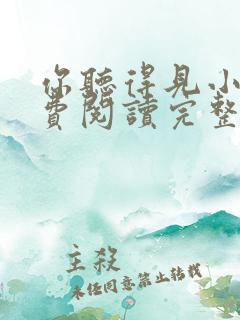 你聽得見小
費閱讀完整
主殺
未经同意禁止转载